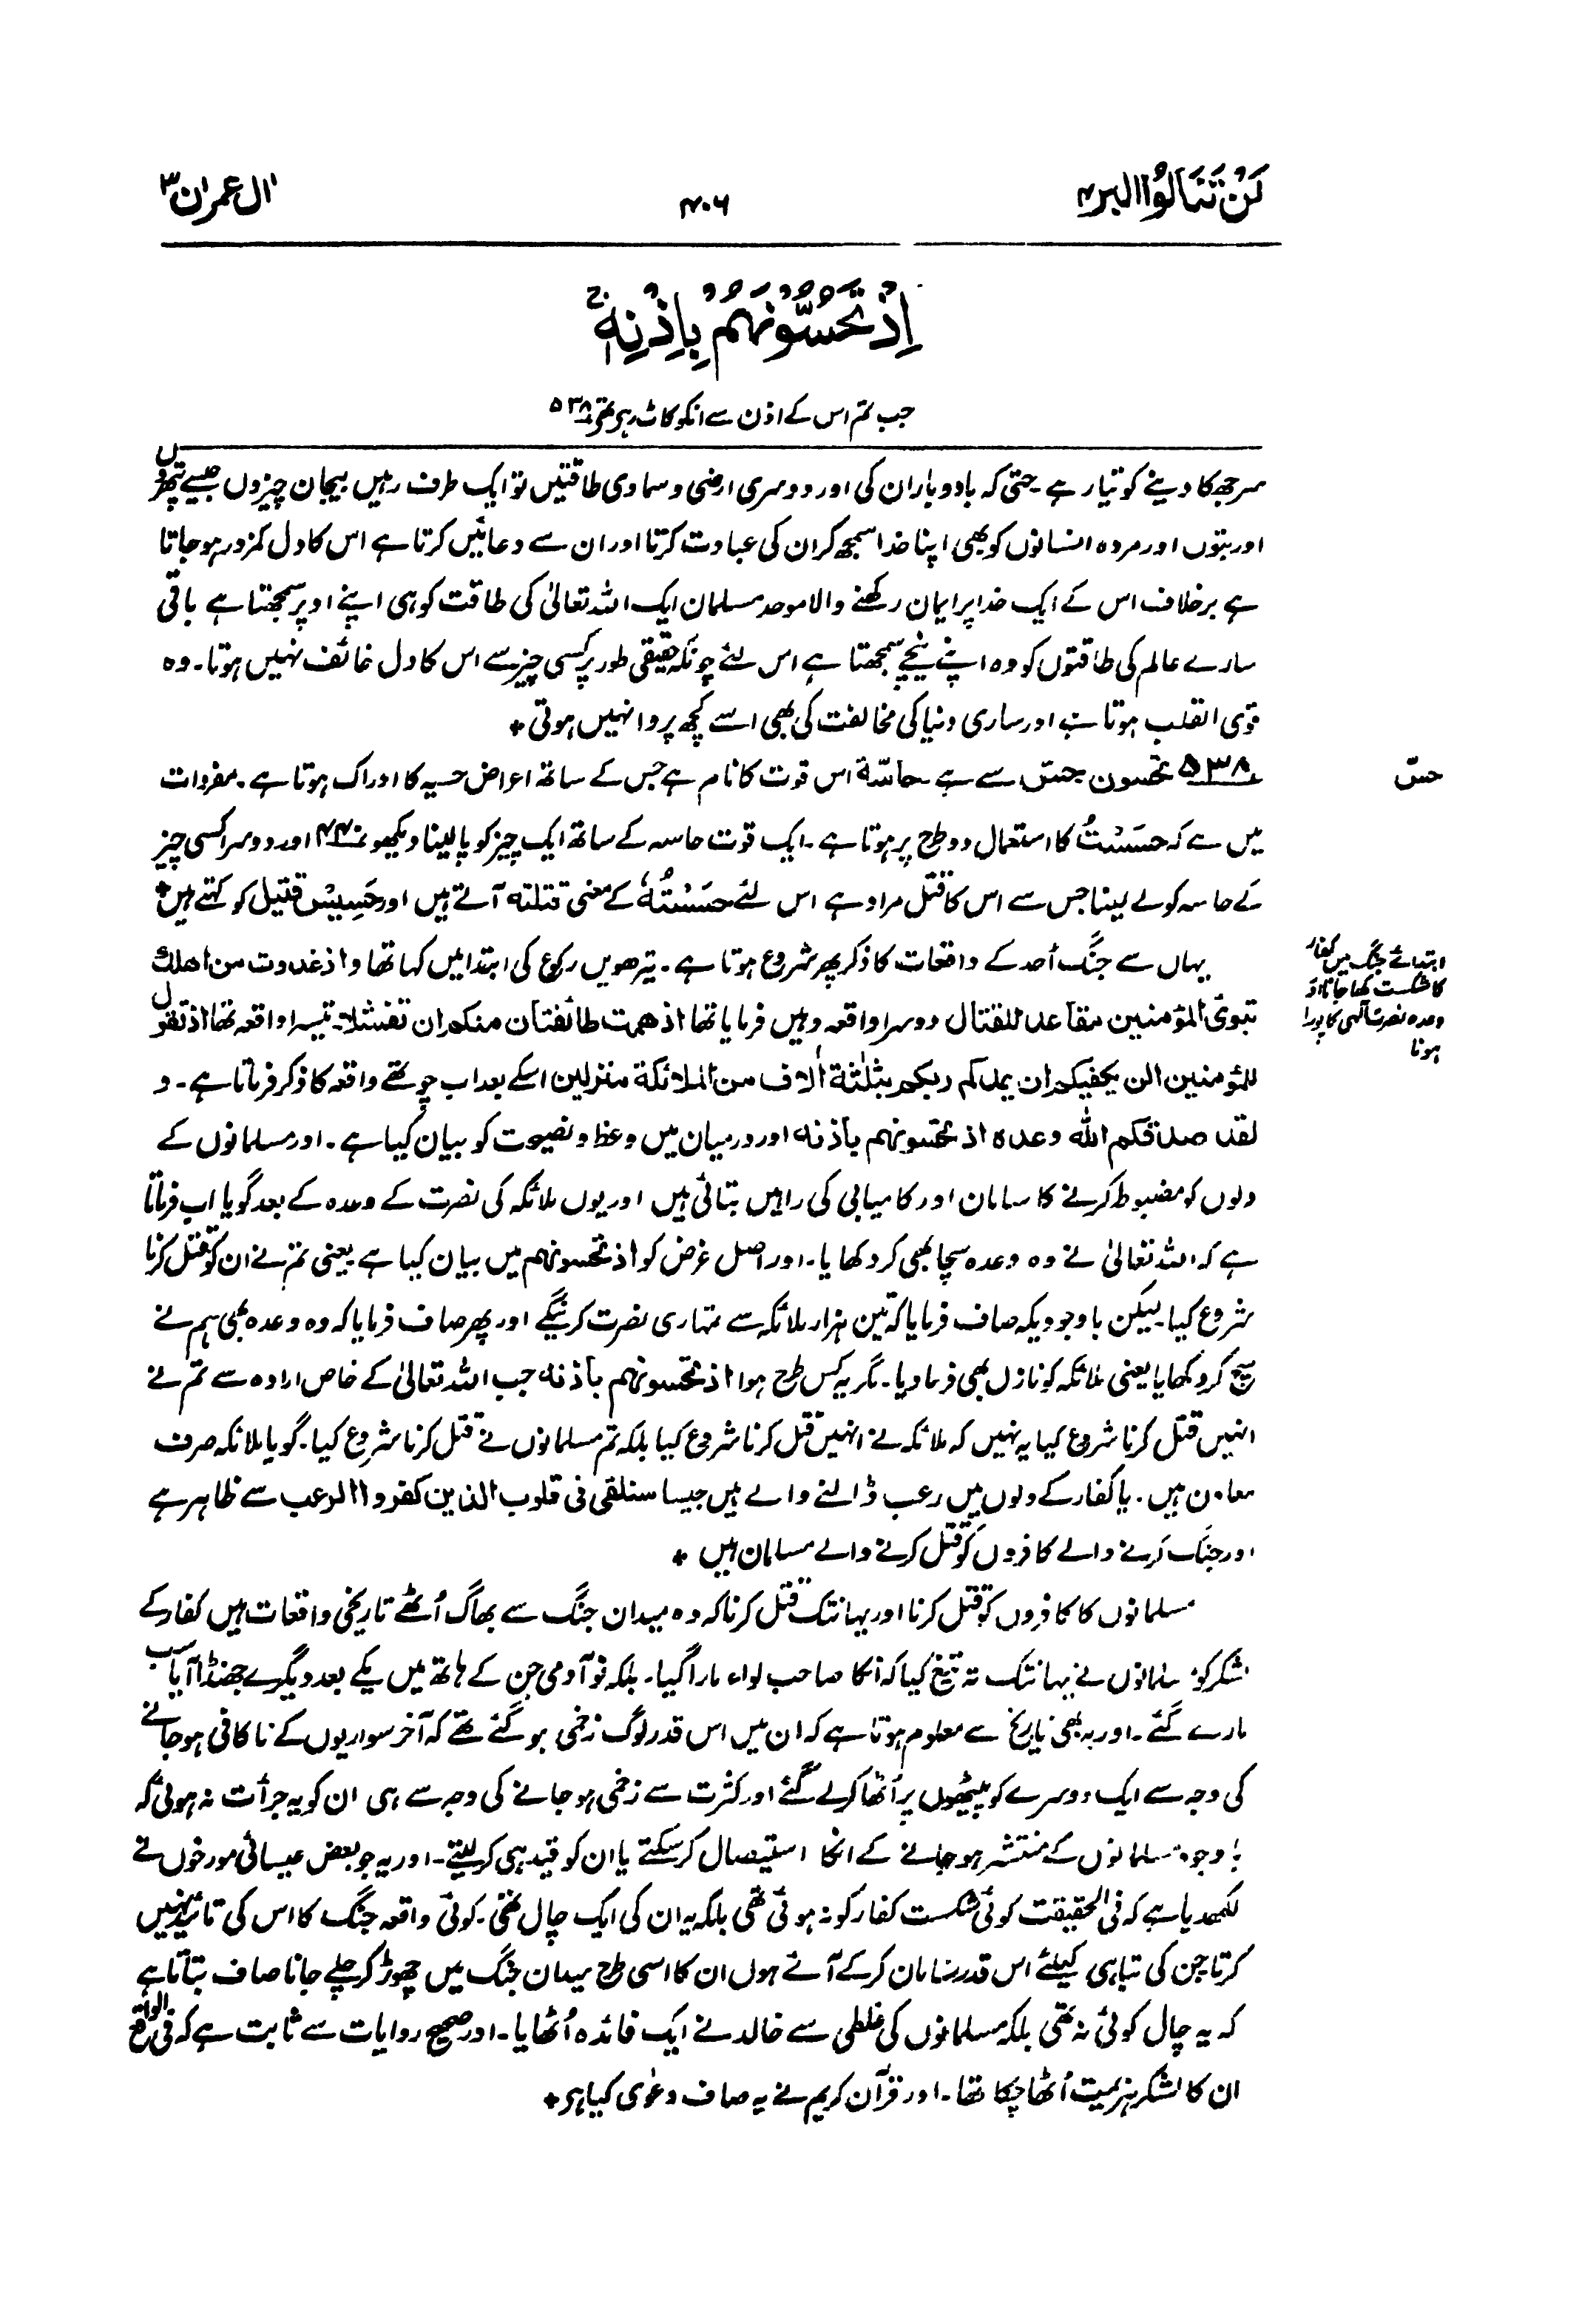 لَنْ تَنَالُوا البر ۴
۴۰۶
اٰل عمران ۳
اِذْ تَحُسُّوْنَهُمْ بِاِذْنِهٖ ۚ
جب تم اس کے اذن سے انکو کاٹ رہے تھے ۵۳۸
سر جھکا دینے کو تیار ہے۔ حتٰی کہ باد و باران کی اور دوسری ارضی و سماوی طاقتیں تو ایک طرف رہیں بیجان چیزوں جیسے پتھروں
اور بتوں اور مردہ انسانوں کو بھی اپنا خدا سمجھ کر ان کی عبادت کرتا اور ان سے دعائیں کرتا ہے اس کا دل کمزور ہو جاتا
ہے برخلاف اس کے ایک خدا پر ایمان رکھنے والا موحد مسلمان ایک اللہ تعالیٰ کی طاقت کو ہی اپنے اوپر سمجھتا ہے باقی
سارے عالم کی طاقتوں کو وہ اپنے نیچے سمجھتا ہے اس لئے چونکہ حقیقی طور پر کسی چیز سے اس کا دل خائف نہیں ہوتا۔ وہ
قوی القلب ہوتا ہے اور ساری دنیا کی مخالفت کی بھی اسے کچھ پروا نہیں ہوتی +
حسّ
۵۳۸ تحسون حِسّ سے ہے حاسّة اس قوت کا نام ہے جس کے ساتھ اعراض حسیہ کا ادراک ہوتا ہے۔ مفردات
میں ہے کہ حَسَسْتُ کا استعمال دو طرح پر ہوتا ہے۔ ایک قوت حاسہ کے ساتھ ایک چیز کو پا لینا دیکھو ۴۴۰ اور دوسرا کسی چیز
کے حاسہ کو لے لینا جس سے اس کا قتل مراد ہے اس لئے حَسَسْتُهٗ کے معنی قتلته آتے ہیں اور حَسِیْس قتیل کو کہتے ہیں +
ابتدائے جنگ میں کفار
کا شکست کھا جانا اور
وعدہ نصرت الٰہی کا پورا
ہونا
یہاں سے جنگ اُحد کے واقعات کا ذکر پھر شروع ہوتا ہے۔ تیرھویں رکوع کی ابتدا میں کہا تھا واذ غدوت من اهلك
تبوئ المؤمنین مقاعد للقتال دوسرا واقعہ وہیں فرمایا تھا اذ همت طائفتان منکم ان تفشلا۔ تیسرا واقعہ تھا اذ تقول
للمؤمنین الن یکفیکم ان یمدکم ربکم بثلٰثة اٰلاف من الملائکة منزلین اسکے بعد اب چوتھے واقعہ کا ذکر فرماتا ہے۔ و
لقد صدقکم اللّٰه وعده اذ تحسونهم باذنه اور درمیان میں وعظ و نصیحت کو بیان کیا ہے۔ اور مسلمانوں کے
دلوں کو مضبوط کرنے کا سامان اور کامیابی کی راہیں بتائی ہیں اور یوں ملائکہ کی نصرت کے وعدہ کے بعد گویا اب فرماتا
ہے کہ اللہ تعالیٰ نے وہ وعدہ سچا بھی کر دکھایا۔ اور اصل غرض کو اذ تحسونهم میں بیان کیا ہے یعنی تم نے ان کو قتل کرنا
شروع کیا۔ لیکن باوجودیکہ صاف فرمایا کہ تین ہزار ملائکہ سے تمہاری نصرت کرینگے اور پھر صاف فرمایا کہ وہ وعدہ بھی ہم نے
سچ کر دکھایا یعنی ملائکہ کو نازل بھی فرما دیا۔ مگر یہ کس طرح ہوا اذ تحسونهم باذنه جب اللہ تعالیٰ کے خاص ارادہ سے تم نے
انہیں قتل کرنا شروع کیا یہ نہیں کہ ملائکہ نے انہیں قتل کرنا شروع کیا بلکہ تم مسلمانوں نے قتل کرنا شروع کیا۔ گویا ملائکہ صرف
معاون ہیں۔ یا کفار کے دلوں میں رعب ڈالنے والے ہیں جیسا سنلقی فی قلوب الذین کفروا الرعب سے ظاہر ہے
اور جنگ کرنے والے کافروں کو قتل کرنے والے مسلمان ہیں +
مسلمانوں کا کافروں کو قتل کرنا اور یہانتک قتل کرنا کہ وہ میدان جنگ سے بھاگ اُٹھے تاریخی واقعات ہیں کفار کے
لشکر کو مسلمانوں نے یہانتک تہ تیغ کیا کہ انکا صاحب لواء مارا گیا۔ بلکہ نو آدمی جن کے ہاتھ میں یکے بعد دیگرے جھنڈا آیا سب
مارے گئے۔ اور یہ بھی تاریخ سے معلوم ہوتا ہے کہ ان میں اس قدر لوگ زخمی ہو گئے تھے کہ آخر سواریوں کے ناکافی ہو جانے
کی وجہ سے ایک دوسرے کو پیٹھوں پر اُٹھا کر لے گئے اور کثرت سے زخمی ہو جانے کی وجہ سے ہی ان کو یہ جرأت نہ ہوئی کہ
باوجود مسلمانوں کے منتشر ہو جانے کے انکا استیصال کر سکتے یا ان کو قید ہی کر لیتے۔ اور یہ جو بعض عیسائی مورخوں نے
لکھدیا ہے کہ فی الحقیقت کوئی شکست کفار کو نہ ہوئی تھی بلکہ یہ ان کی ایک چال تھی۔ کوئی واقعہ جنگ کا اس کی تائید نہیں
کرتا جن کی تباہی کیلئے اس قدر سامان کر کے آئے ہوں ان کا اسی طرح میدان جنگ میں چھوڑ کر چلے جانا صاف بتاتا ہے
کہ یہ چال کوئی نہ تھی بلکہ مسلمانوں کی غلطی سے خالد نے ایک فائدہ اُٹھایا۔ اور صحیح روایات سے ثابت ہے کہ فی الواقع
ان کا لشکر ہزیمت اُٹھا چکا تھا۔ اور قرآن کریم نے یہ صاف دعوٰی کیا ہے +